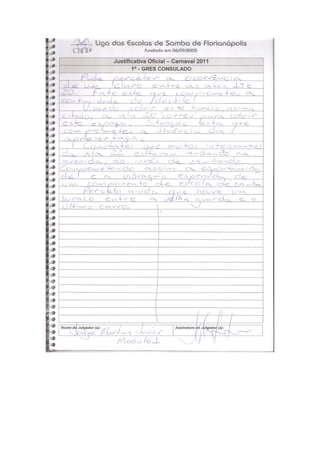 Liga das Escolas de Samba de Florianópolis
Fundada em 05/09/2005
Justificativa Oficial – Carnaval 2011
1ª - GRES CONSULADO
Pude perceber a ocorrência
de um claro entre as alas 19 e
20. Fato este que compromete a
continuidade do desfile.
Visando cobrir este buraco, acima
citado, a ala 20 correu para cobrir
este espaço. Situação esta que
comprometeu a fluência da
apresentação.
Constatei que muitos integrantes
da ala estavam andando na
avenida, ao invés de sambando.
Comprometendo assim a espontaneida
de e a vibração esperada de
um componente de escola de samba
Percebi ainda que houve um
buraco entre a velha guarda e o
último carro.
Nome do Julgador (a):
Assinatura do Julgador (a):
Jorge
Modulo 1